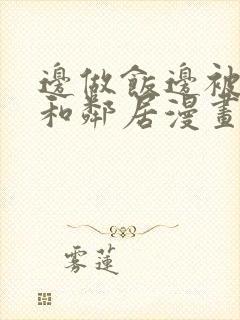 邊做飯邊被
和鄰居漫畫
雾蓮